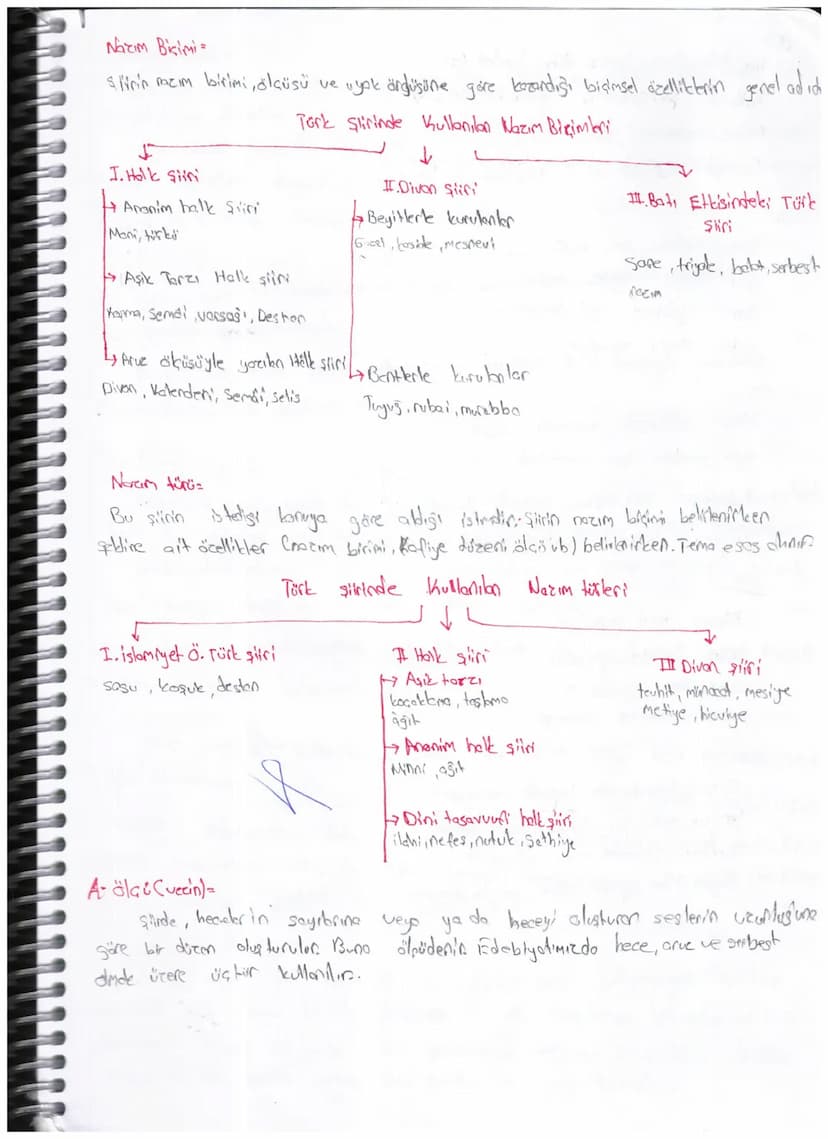 Nazım Biçimi=
Şiirin nazım birimi, ölçüsü ve uyak örgüsüne göre kazandığı biçimsel özelliklerin genel adıdı
Türk Şiirinde Kullanılan Nazım Biçimleri
I. Halk Şiiri
→ Anonim halk Şiiri
Mani, türkü
→ Aşık Tarzı Halk şiiri
Koşma, Semai, varsağı, Destan
→ Aruz ölçüsüyle yazılan Halk şiiri
Divan, Kalenderi, Semai, selis
II. Divan Şiiri
→ Beyitlerle kurulanlar
Gazel, kaside, mesnevi
→ Bentlerle kurulanlar
Tuyuğ, rubai, murabba
III. Batı Etkisindeki Türk
Şiiri
Sone, triyole, balat, serbest
nazım
Nazım türü=
Bu şiirin istediği konuya göre aldığı isimdir. Şiirin nazım biçimi belirlenirken
şekline ait özellikler (nazım birimi, Kafiye düzeni ölçü vb) belirlenirken. Tema esas alınır.
Türk şiirinde Kullanılan Nazım türleri
I. İslamiyet Ö. Türk şiiri
sagu, koşuk, destan
II Halk şiiri
→ Aşık tarzı
koçaklama, taşlama
ağıt
→ Anonim halk şiiri
Ninni, ağıt
→ Dini tasavvufi halk şiiri
ilahi, nefes, nutuk, şathiye
III Divan şiiri
tevhit, münacat, mesiye
metiye, hicviye
A- ölçü (vezin)=
Şiirde, hecelerin sayılarına veya ya da heceyi oluşturan seslerin uzunluğuna
göre bir düzen oluşturulur. Buna ölçü denir. Edebiyatımızda hece, aruz ve serbest
olmak üzere üç tür kullanılır.